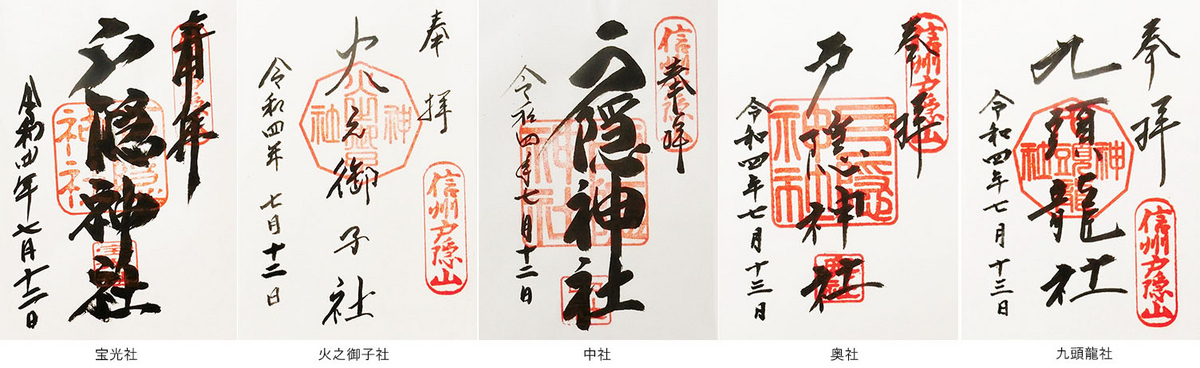 奉拝
戸隠神社
令和四年七月十二日
宝光社
奉拝
信州戸隠山
火之御子社
令和四年 七月十二日
火之御子社
信州戸隠山
奉拝
戸隠神社
令和四年七月十二日
中社
信州戸隠山
奉拝
戸隠神社
令和四年七月十三日
奥社
奉拝
信州戸隠山
九頭龍社
令和四年七月十三日
九頭龍社